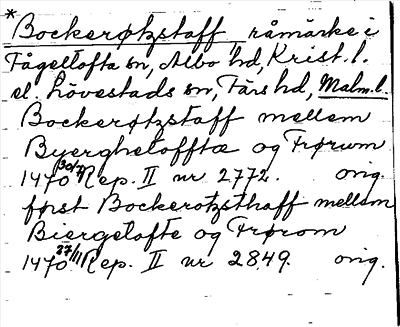 * Bockerøtzstaff, råmärke i
Fågeltofta sn, Albo hd, Krist. l.
el. Lövestads sn, Färs hd, Malm. l.
Bockerøtzstaff mellem
Byerghetofftæ oc Frørum
1470 30/7 Rep. II nr 2772. orig.
først Bockerotzsthaff mellem
Biergetofte og Frørom
1470 27/11 Rep. II nr 2849. orig.